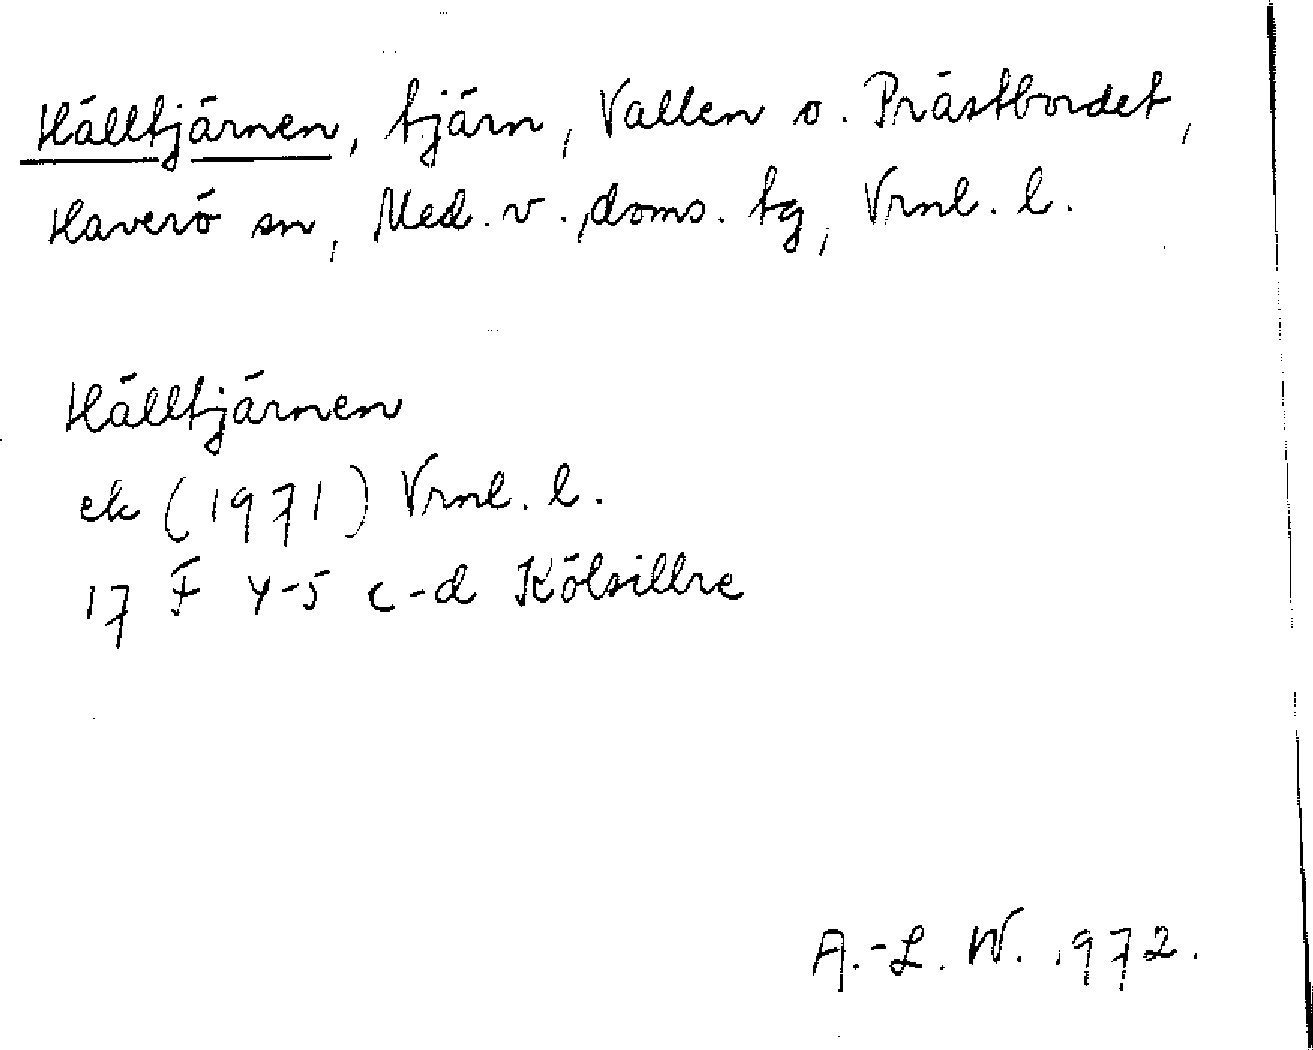 Hälltjärnen, tjärn, Vallen o. Prästbordet,
Haverö sn, Med. v. doms. tg, Vrnl. l.
Hälltjärnen
ek (1971) Vrnl. l.
17 F 4-5 c-d Kölsillre
A.-L. W. 1972.